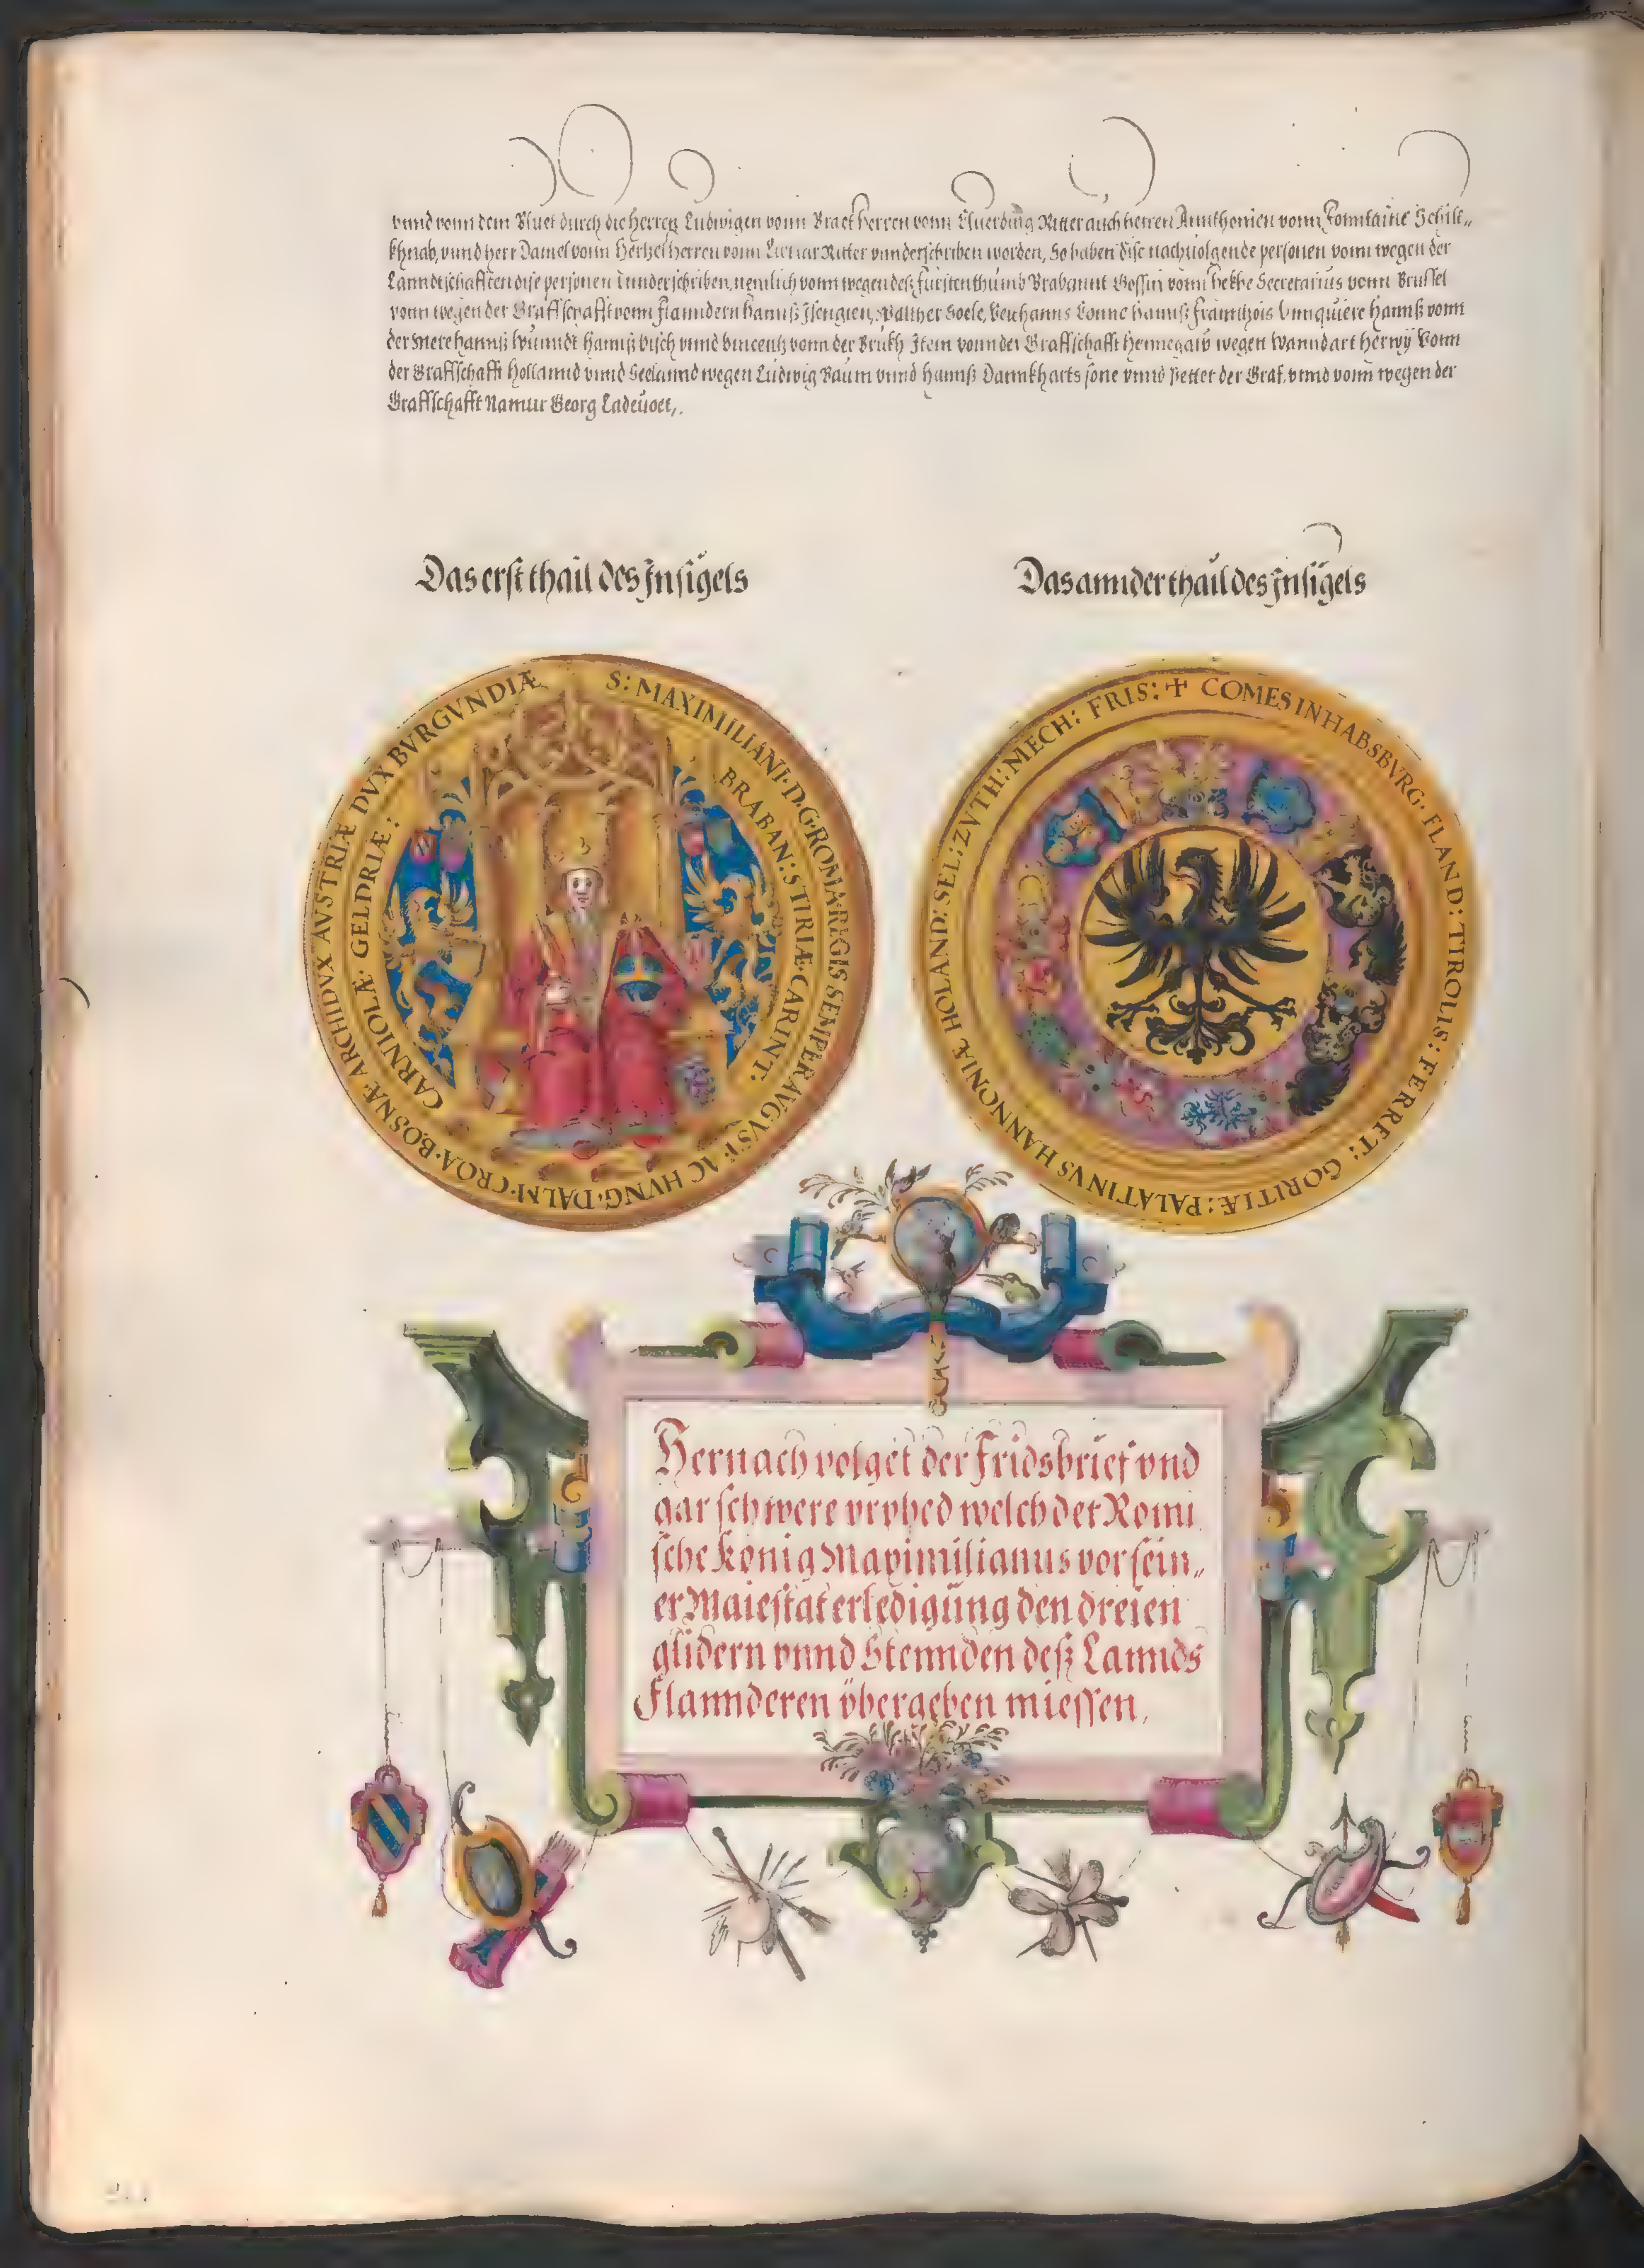 vnnd vonn dem Bluet durch die herren Ludwigen vonn Praet herren vonn Ritter auch herren Annthonien vonn Fonntaine Schilt„
khnab, vnnd herr Daniel vonn herren vonn Ritter vnnderschriben worden, So haben dise nachuolgende personen vonn wegen der
Lanndtschafften dise personen vnnderschriben, nemlich vonn wegen deß fürstenthumb Brabannt Gossin vonn Secretarius vonn Brussel
vonn wegen der Graffschafft vonn flanndern hannß Walther hannß hannß vonn
der Mere hannß hannß visch vnnd vincentz vonn der Brukh Item vonn der Graffschafft hennegaw wegen Vonn
der Graffschafft hollannd vnnd Seelannd wegen Ludwig Baum vnnd hannß Dannkharts sone vnnd Petter der Graf, vnnd vonn wegen der
Graffschafft Namur Georg Ladeuoet,.
Das erst thail des Insigels
Das annder thail des Insigels
S: MAXIMILIANI·D·G·ROMA·REGIS SEMPER AVGVST· AC HVNG·DALM·CROA·BOSNÆ·ARCHIDVX AVSTRIÆ DVX BVRGVNDIÆ
BRABAN: STIRIÆ·CARINT: CARNIOLÆ· GELDRIÆ:
✝ COMES IN HABSBVRG· FLAND: TIROLIS: FERRET: GORITIÆ: PALATINVS HANNONIÆ HOLAND: SEL: ZVTH: MECH: FRIS:
Hernach volget der Fridsbrief vnd
gar schwere vrphed welch der Romi
sche König Maximilianus vor sein„
er Maiestat erledigüng den dreien
glidern vnnd Stennden deß Lannds
Flannderen übergeben miessen,